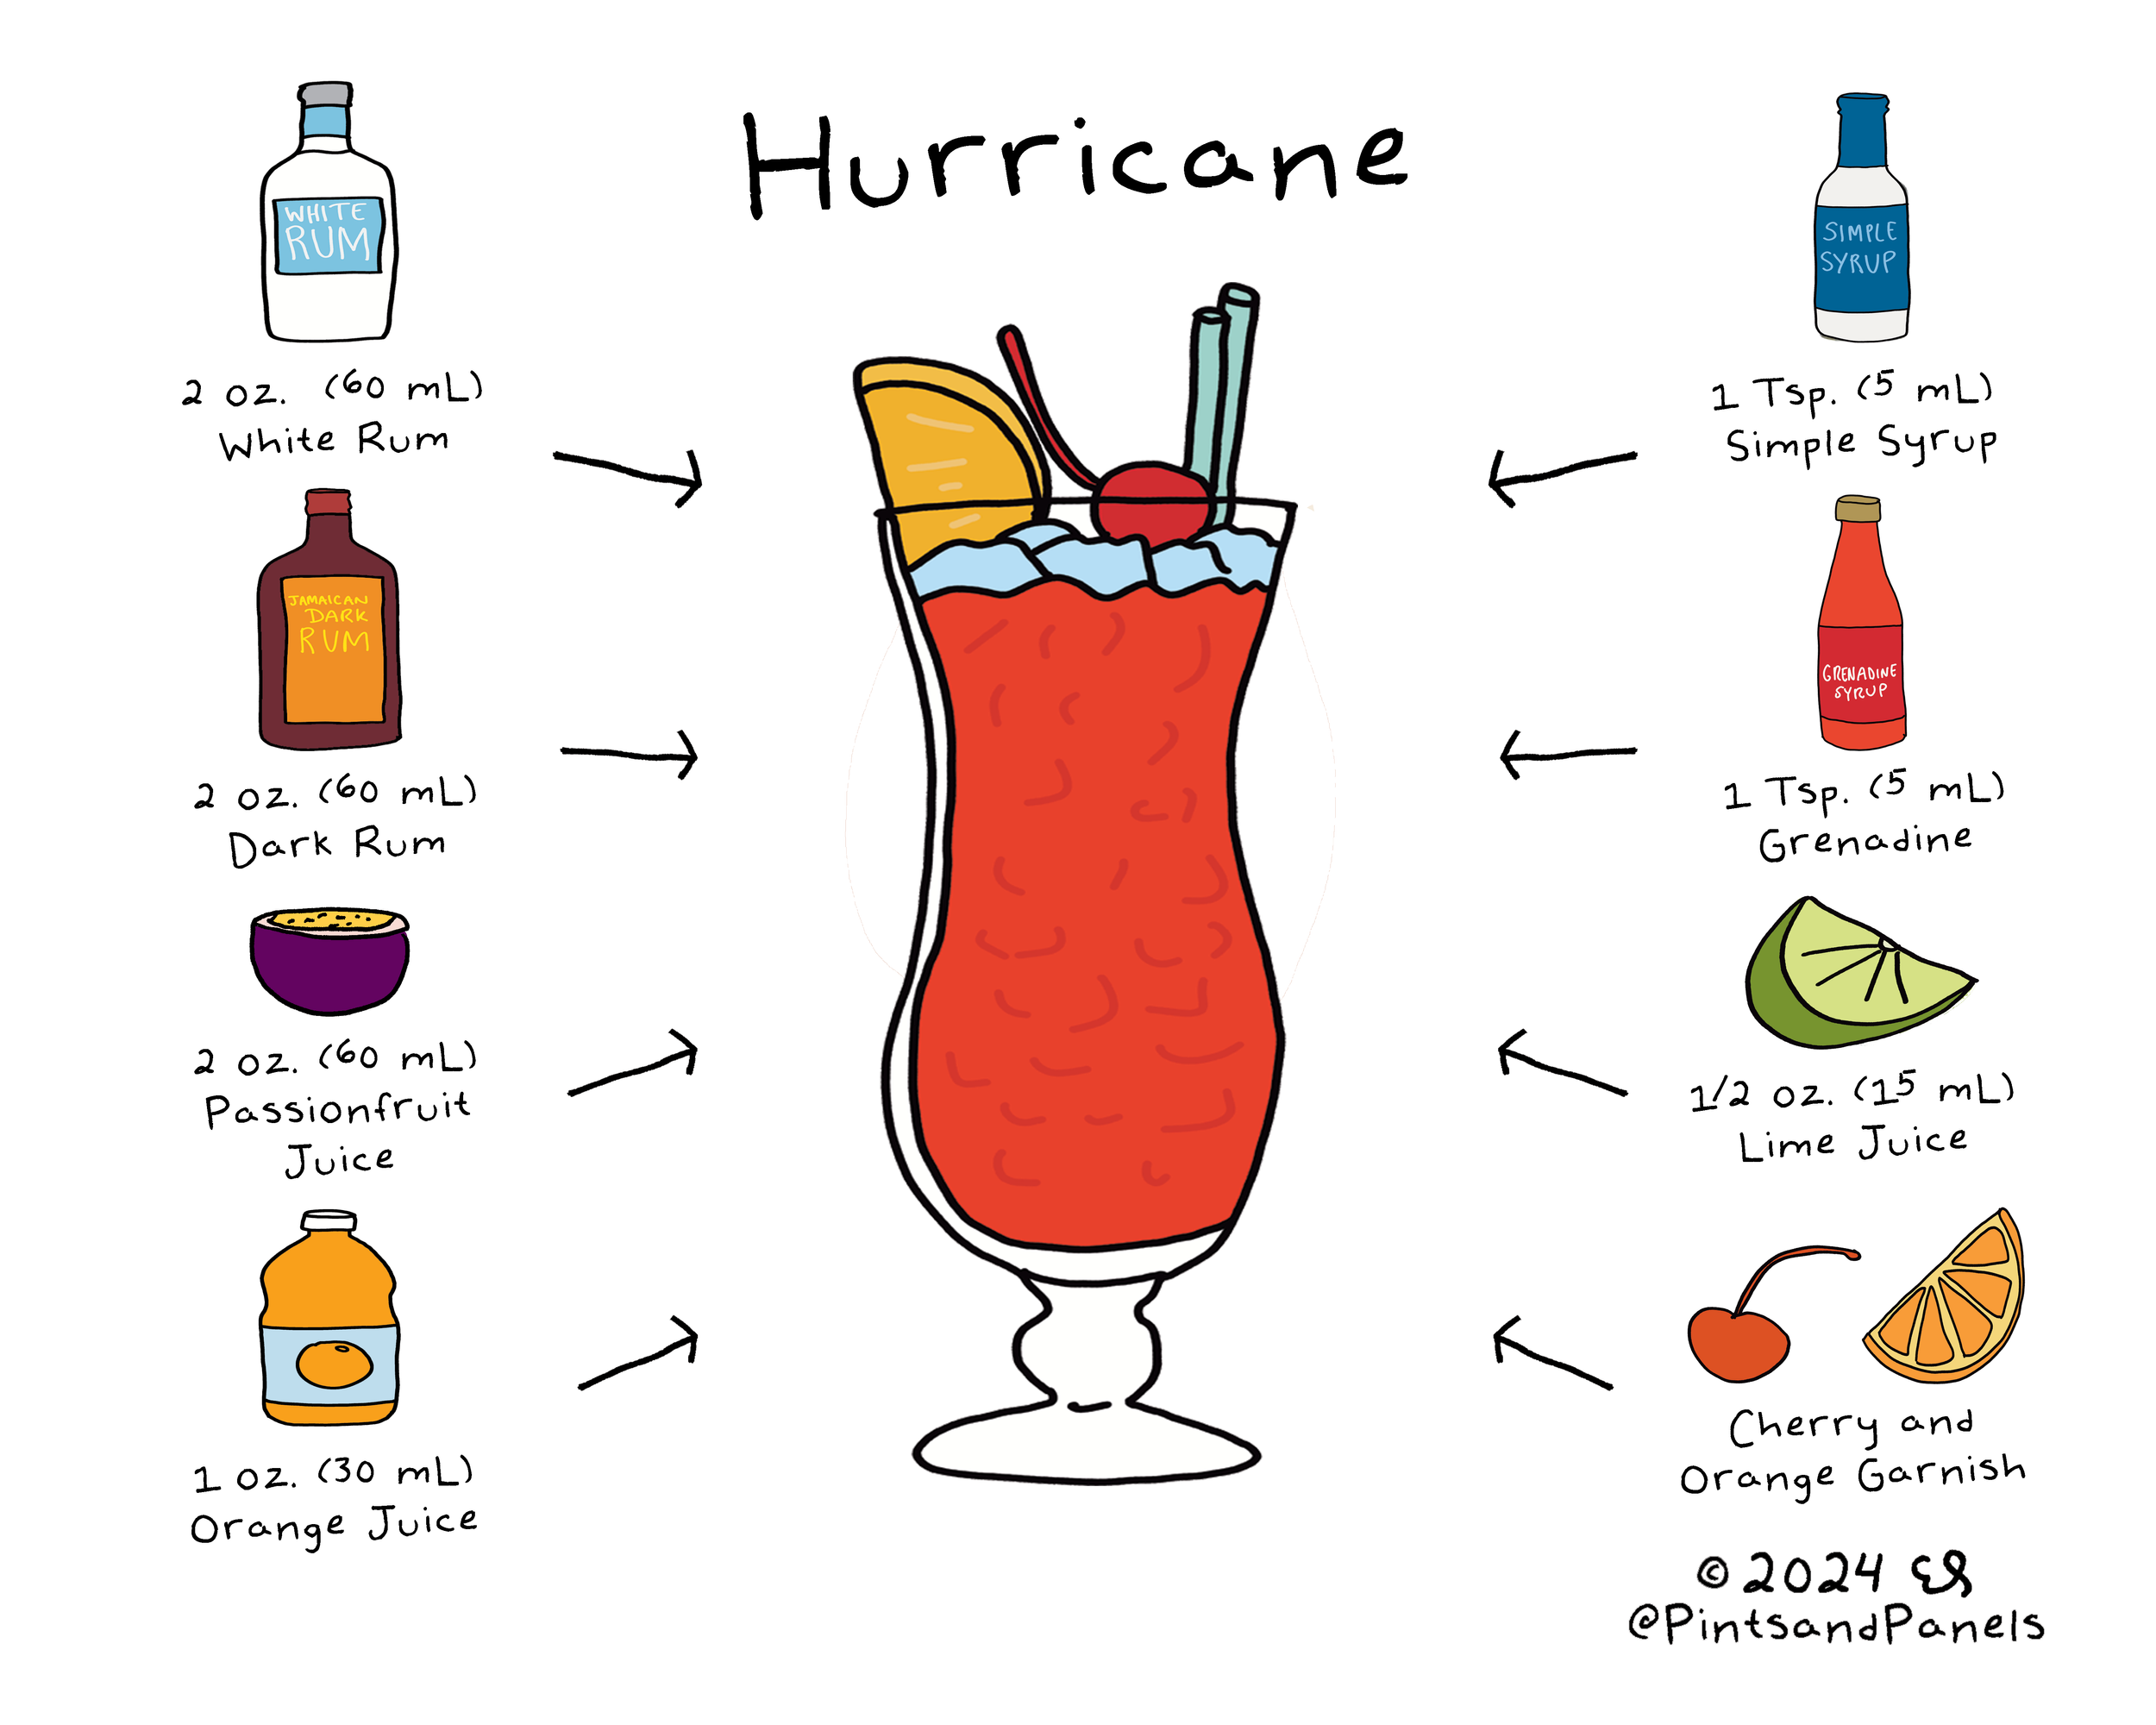 Hurricane
WHITE
RUM
2 oz. (60 mL)
White Rum
JAMAICAN
DARK
RUM
2 oz. (60 mL)
Dark Rum
2 oz. (60 mL)
Passionfruit
Juice
1 oz. (30 mL)
Orange Juice
SIMPLE
SYRUP
1 Tsp. (5 mL)
Simple Syrup
GRENADINE
SYRUP
1 Tsp. (5 mL)
Grenadine
1/2 oz. (15 mL)
Lime Juice
Cherry and
Orange Garnish
© 2024
@PintsandPanels